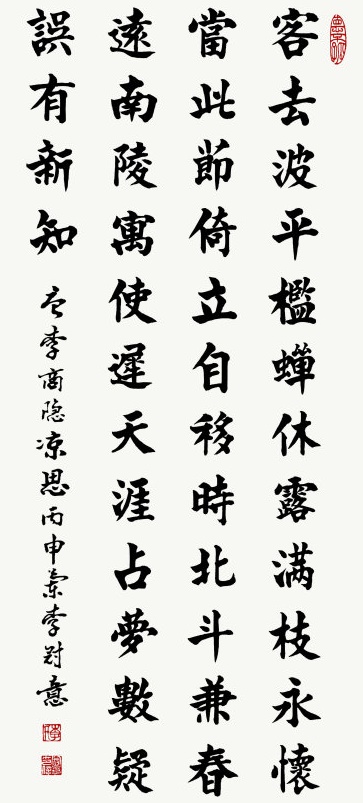 客去波平檻蟬休露满枝永懷
當此節倚立自移時北斗兼春
遠南陵寓使遲天涯占夢數疑
誤有新知
李商隐凉思丙申李意